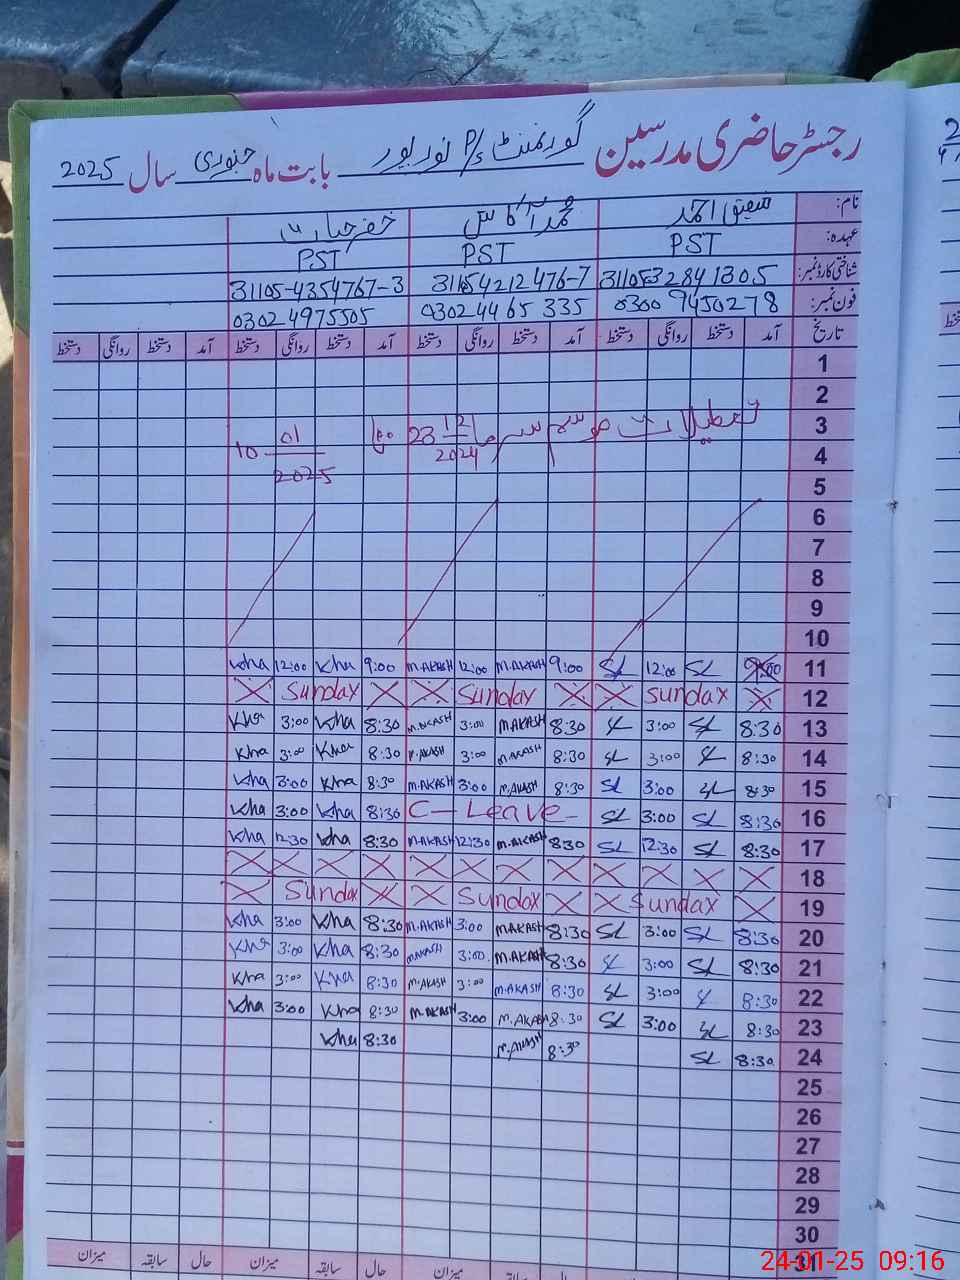 رجسٹر حاضری مدرسین گورنمنٹ P/S نور پور بابت ماہ جنوری سال 2025
نام: شفیق احمد محمد آکاش خضر حیات
عہدہ: PST PST PST
شناختی کارڈ نمبر: 31105-4354767-3
فون نمبر: 0300 9450278 0302 4465 335 0302 4975505
تاریخ آمد دستخط روانگی دستخط آمد دستخط روانگی دستخط آمد دستخط روانگی دستخط آمد دستخط روانگی دستخط
1
2
3 تعطیلات موسم سرما 23 12 2024 تا 10 01 2025
4
5
6
7
8
9
10
11 9:00 SL 12:00 SL 9:00 M.AKASH 12:00 M.AKASH 9:00 Kha 12:00 Kha
12 Sunday Sunday Sunday
13 8:30 SL 3:00 SL 8:30 M.AKASH 3:00 M.AKASH 8:30 Kha 3:00 Kha
14 8:30 SL 3:00 SL 8:30 M.AKASH 3:00 M.AKASH 8:30 Kha 3:00 Kha
15 8:30 SL 3:00 SL 8:30 M.AKASH 3:00 M.AKASH 8:30 Kha 3:00 Kha
16 8:30 SL 3:00 SL C-Leave 8:30 Kha 3:00 Kha
17 8:30 SL 12:30 SL 8:30 M.AKASH 12:30 M.AKASH 8:30 Kha 12:30 Kha
18
19 Sunday Sunday Sunday
20 8:30 SL 3:00 SL 8:30 M.AKASH 3:00 M.AKASH 8:30 Kha 3:00 Kha
21 8:30 SL 3:00 SL 8:30 M.AKASH 3:00 M.AKASH 8:30 Kha 3:00 Kha
22 8:30 SL 3:00 SL 8:30 M.AKASH 3:00 M.AKASH 8:30 Kha 3:00 Kha
23 8:30 SL 3:00 SL 8:30 M.AKASH 3:00 M.AKASH 8:30 Kha 3:00 Kha
24 8:30 SL 8:30 M.AKASH 8:30 Kha
25
26
27
28
29
30
31
حال سابقہ میزان حال سابقہ میزان حال سابقہ میزان
24-01-25 09:16